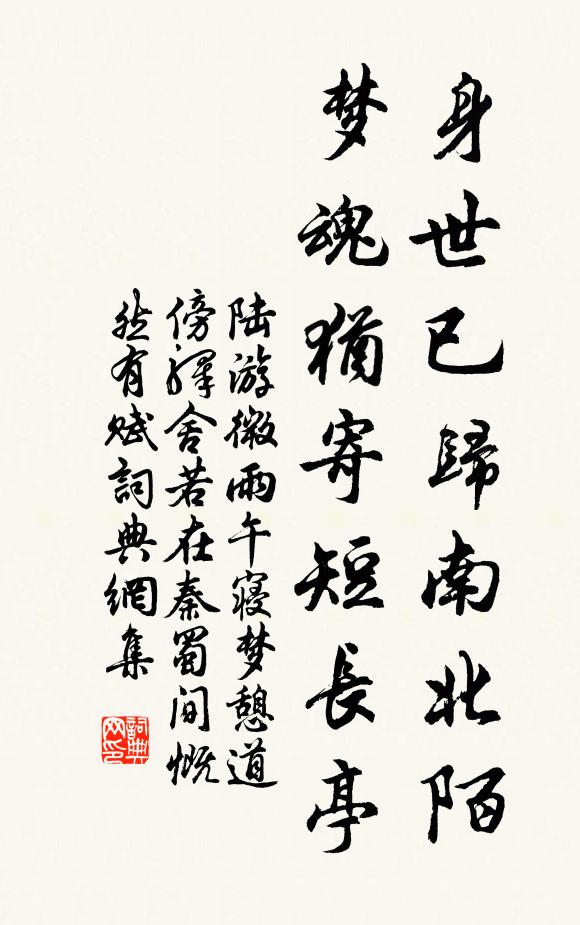 身世已歸南北陌
梦魂猶寄短長亭
陆游微雨午寝梦憩道
傍驛舍若在秦蜀间慨
然有赋詞典網集
詞典
网印